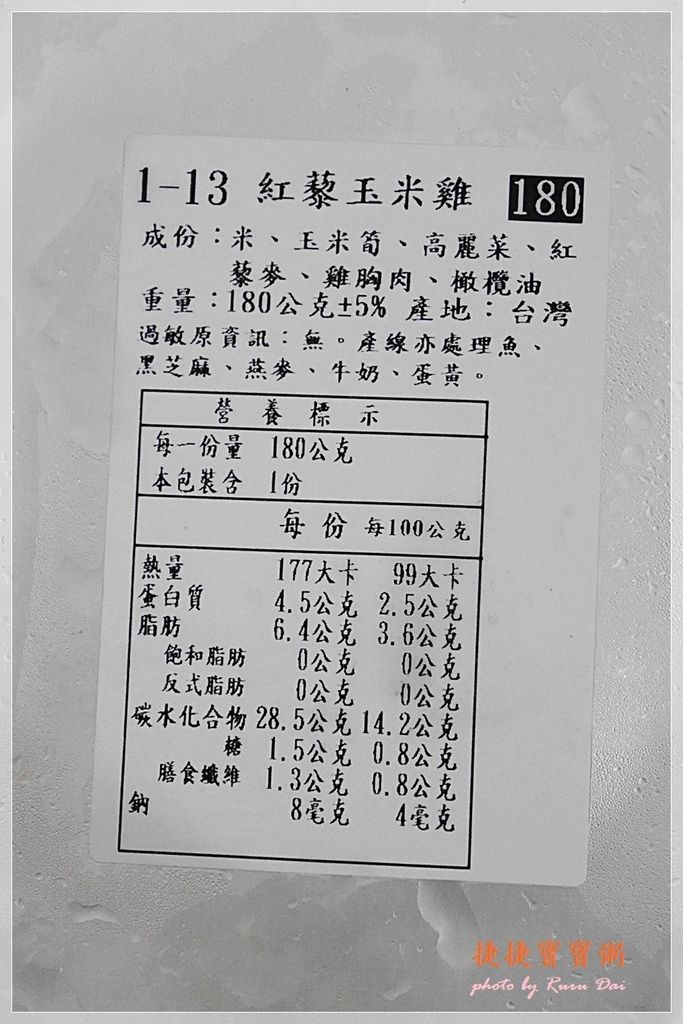 1-13 紅藜玉米雞 180
成份：米、玉米筍、高麗菜、紅
藜麥、雞胸肉、橄欖油
重量：180公克±5% 產地：台灣
過敏原資訊：無。產線亦處理魚、
黑芝麻、燕麥、牛奶、蛋黃。
營養標示
每一份量 180公克
本包裝含 1份
每份 每100公克
熱量 177大卡 99大卡
蛋白質 4.5公克 2.5公克
脂肪 6.4公克 3.6公克
飽和脂肪 0公克 0公克
反式脂肪 0公克 0公克
碳水化合物 28.5公克 14.2公克
糖 1.5公克 0.8公克
膳食纖維 1.3公克 0.8公克
鈉 8毫克 4毫克
捷捷寶寶粥
photo by Ruru Dai